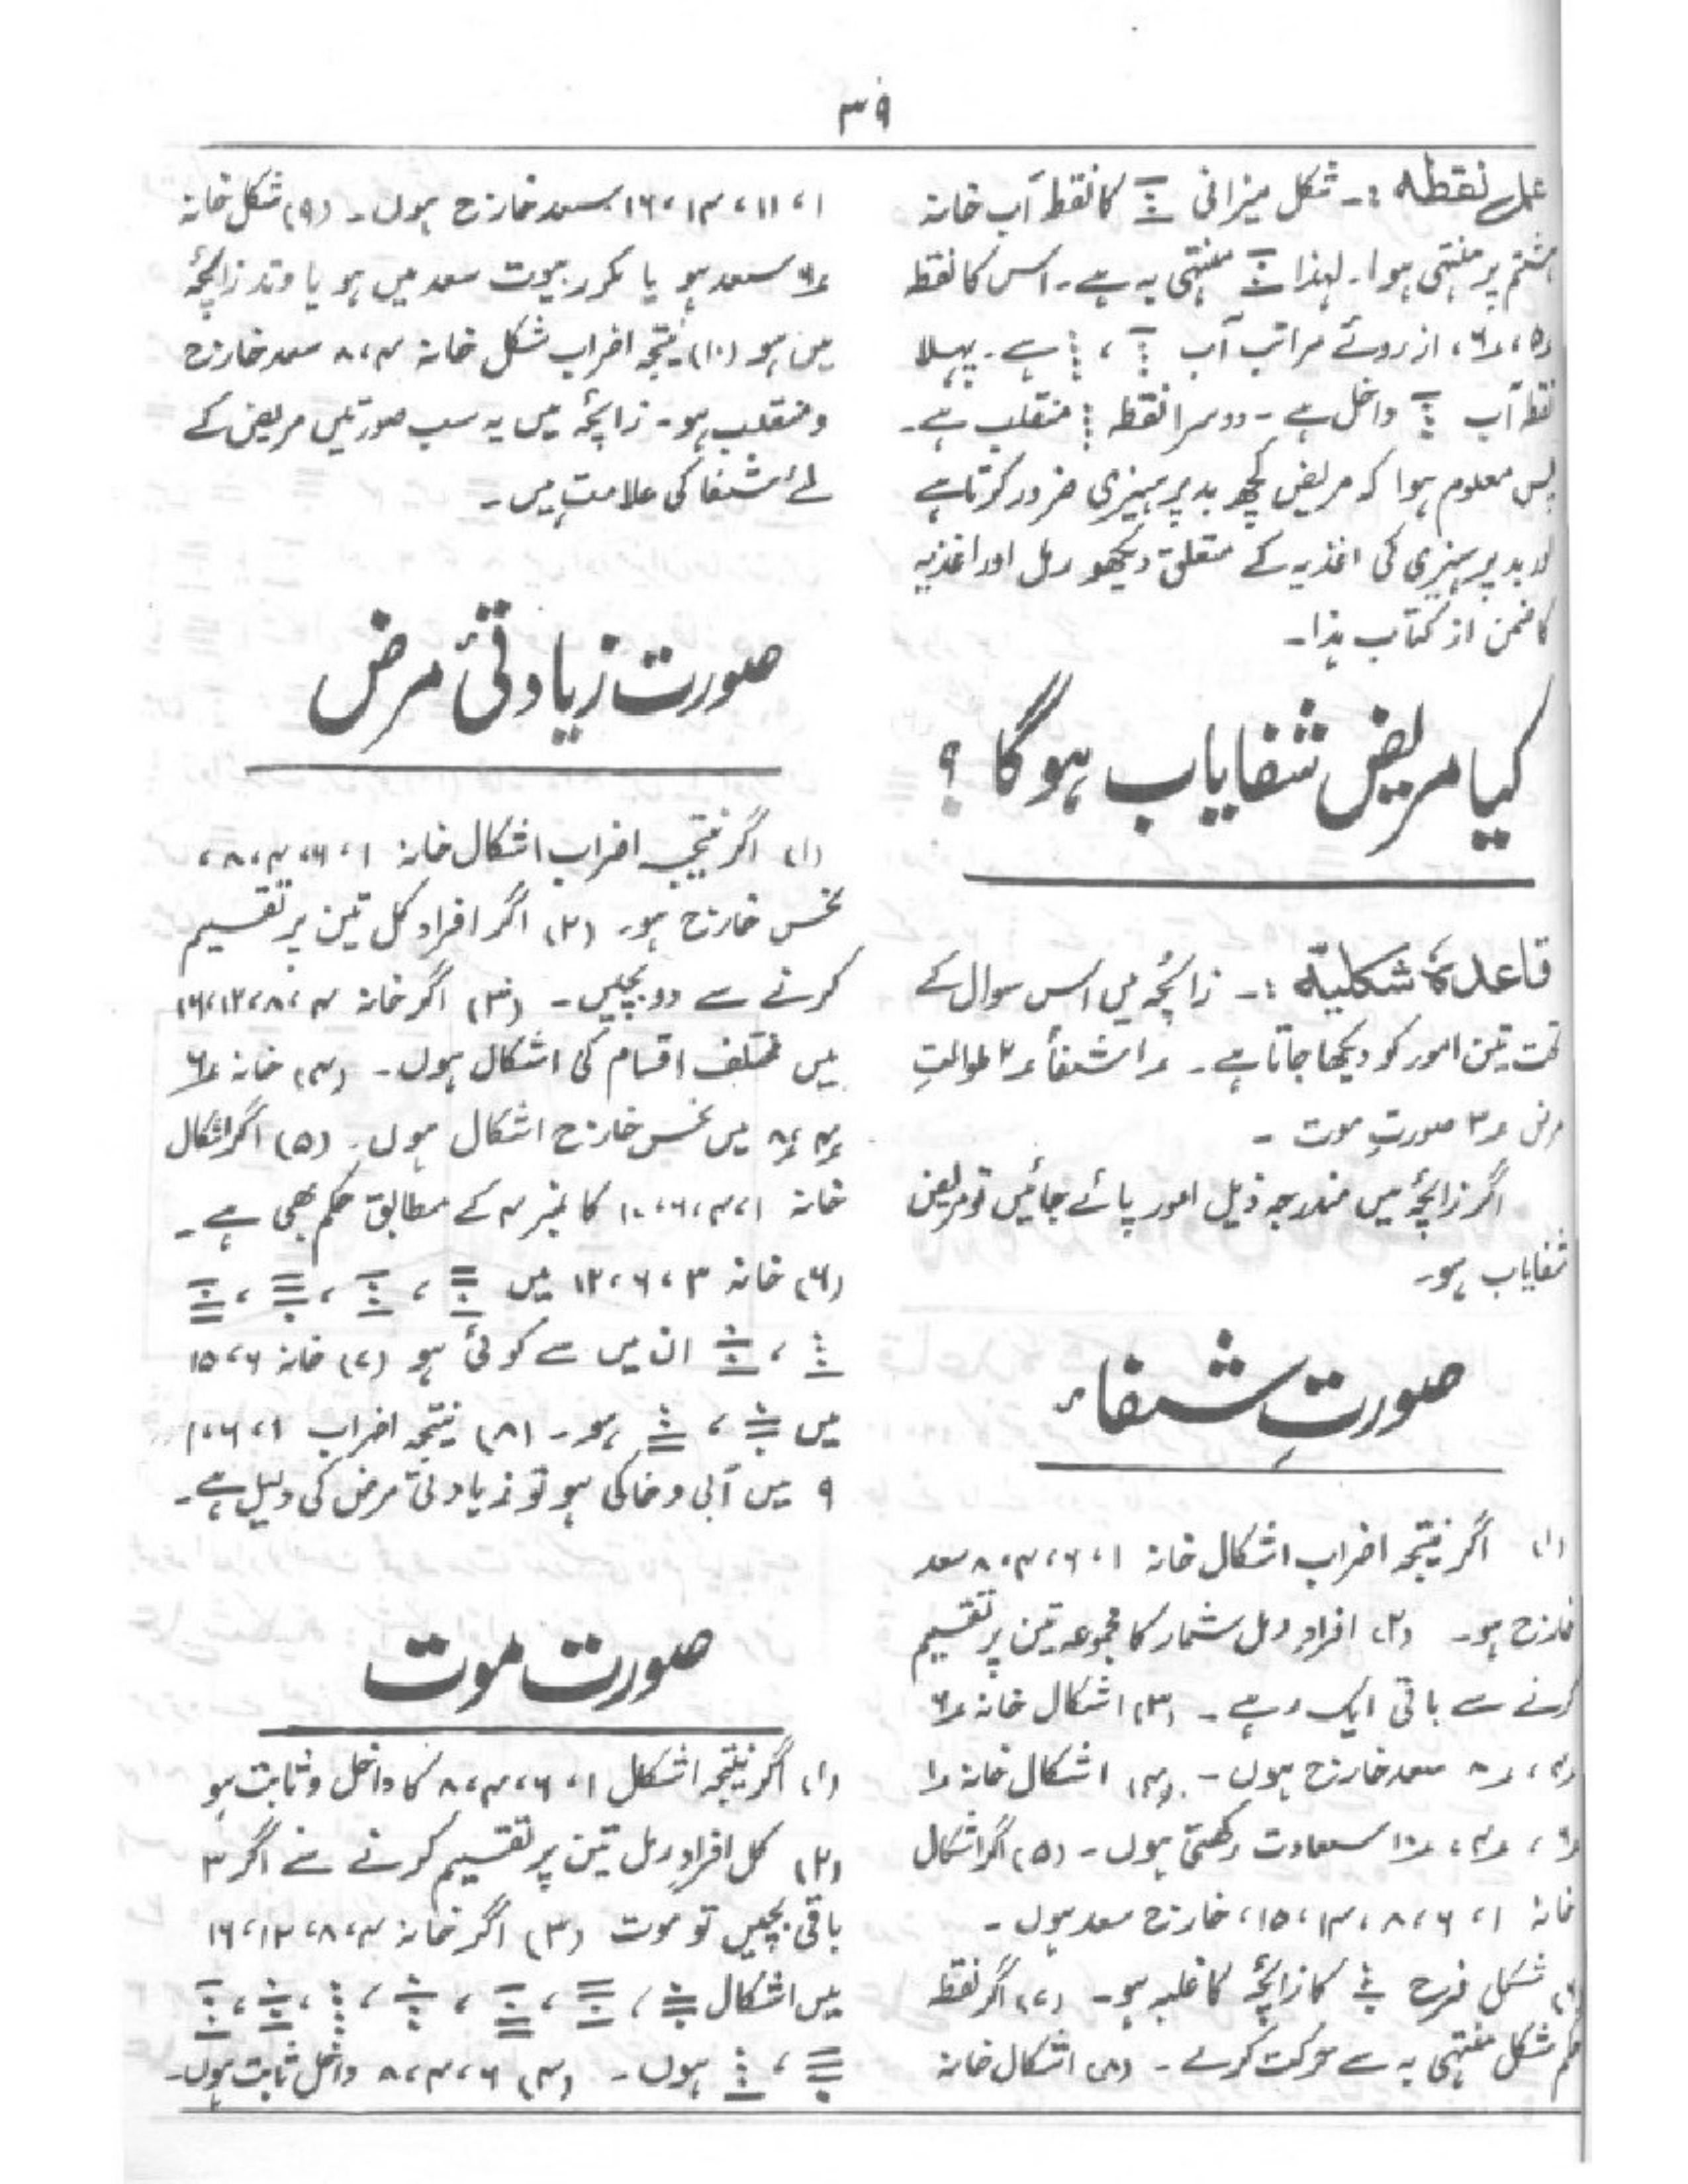 ۳۹
عمل نقطہ :۔ شکل میزانی کا نقطہ آب خانہ
ہشتم پر منتہی ہوا۔ لہذا منتہی بہ ہے۔ اس کا نقطہ
۵، ۶، ازروئے مراتب آب ، ہے۔ پہلا
نقطہ آب داخل ہے۔ دوسرا نقطہ منقلب ہے۔
پس معلوم ہوا کہ مریض کچھ بدپرہیزی ضرور کرتا ہے
بدپرہیزی کی اغذیہ کے متعلق دیکھو رمل اور اغذیہ
کا ضمن از کتاب ہذا۔
کیا مریض شفایاب ہوگا ؟
قاعدۂ شکلیّہ :۔ زائچہ میں اس سوال کے
تحت تین امور کو دیکھا جاتا ہے۔ ۱ شفاء ۲ طوالتِ
مرض ۳ صورتِ موت ۔
اگر زائچہ میں مندرجہ ذیل امور پائے جائیں تو مریض
شفایاب ہو۔
صورتِ شفاء
(۱) اگر نتیجہ اضراب اشکال خانہ ۱، ۶، ۴، ۸ سعد
خارج ہو۔ (۲) افراد رمل شمار کا مجموعہ تین پر تقسیم
کرنے سے باقی ایک رہے۔ (۳) اشکال خانہ ۶
۴، ۸ سعد خارج ہوں۔ (۴) اشکال خانہ ۱
۶، ۴، ۱۰ سعادت رکھتی ہوں۔ (۵) اگر اشکال
خانہ ۱، ۶، ۸، ۱۴، ۱۵، خارج سعد ہوں۔
(۶) شکل فرح کا زائچہ کا غلبہ ہو۔ (۷) اگر نقطہ
حکم شکل منتہی بہ سے حرکت کرے۔ (۸) اشکال خانہ
۱، ۱۱، ۱۴، ۱۶ سعد خارج ہوں۔ (۹) شکل خانہ
۶ سعد ہو یا مکرر بیوت سعد میں ہو یا وتد زائچہ
میں ہو (۱۰) نتیجہ اضراب شکل خانہ ۴، ۸ سعد خارج
و منقلب ہو۔ زائچہ میں یہ سب صورتیں مریض کے
لئے شفا کی علامت ہیں۔
صورت زیادتیٔ مرض
(۱) اگر نتیجہ اضراب اشکال خانہ ۱، ۶، ۴، ۸،
نحس خارج ہو۔ (۲) اگر افراد کل تین پر تقسیم
کرنے سے دو بچیں۔ (۳) اگر خانہ ۴، ۸، ۱۲، ۱۶
میں مختلف اقسام کی اشکال ہوں۔ (۴) خانہ ۶
۴، ۸ میں نحس خارج اشکال ہوں۔ (۵) اگر اشکال
خانہ ۱، ۴، ۶، ۱۰ کا نمبر ۴ کے مطابق حکم بھی ہے۔
(۶) خانہ ۳، ۶، ۱۲ میں ، ، ،
، ان میں سے کوئی ہو (۷) خانہ ۶، ۱۵
میں ، ہو۔ (۸) نتیجہ اضراب ۱، ۶، ۱۰
۹ میں آبی و خاکی ہو تو زیادتی مرض کی دلیل ہے۔
صورت موت
(۱) اگر نتیجہ اشکال ۱، ۶، ۴، ۸ کا داخل و ثابت ہو
(۲) کل افراد رمل تین پر تقسیم کرنے سے اگر ۳
باقی بچیں تو موت (۳) اگر خانہ ۴، ۸، ۱۲، ۱۶
میں اشکال ، ، ، ، ، ،
، ہوں۔ (۴) ۶، ۴، ۸ داخل ثابت ہوں۔